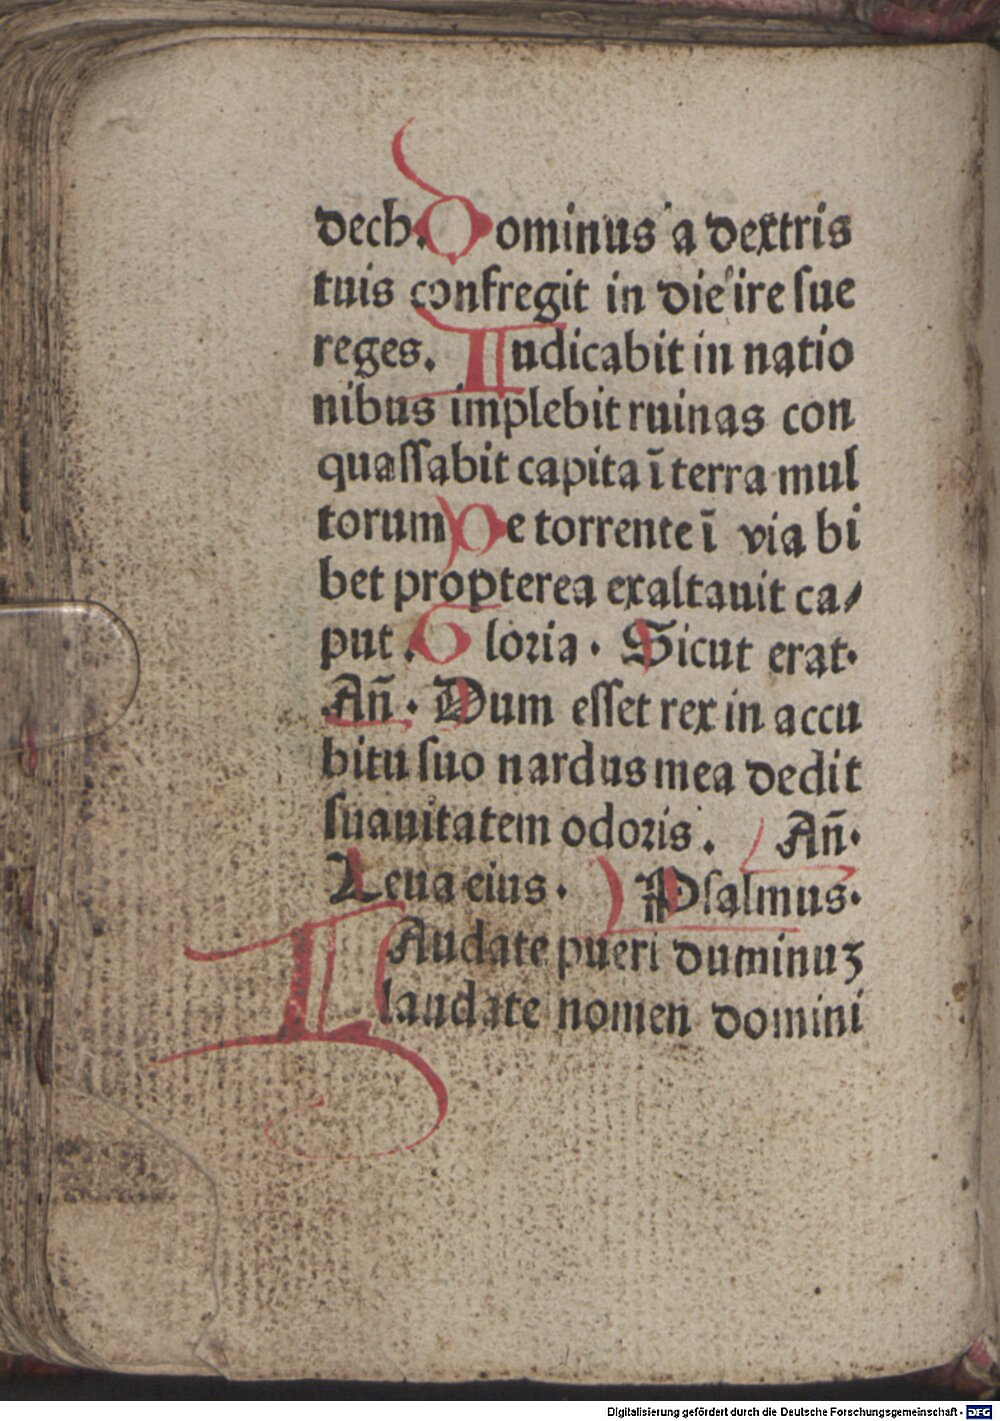 dech. Dominus a dextris
tuis confregit in die ire sue
reges. Iudicabit in natio
nibus implebit ruinas con
quassabit capita ī terra mul
torum De torrente ī via bi
bet propterea exaltauit ca/
put. Gloria. Sicut erat.
Añ. Dum esset rex in accu
bitu suo nardus mea dedit
suauitatem odoris. Añ.
Leua eius. Psalmus.
LAudate pueri duminuꝫ
laudate nomen domini
Digitalisierung gefördert durch die Deutsche Forschungsgemeinschaft - DFG